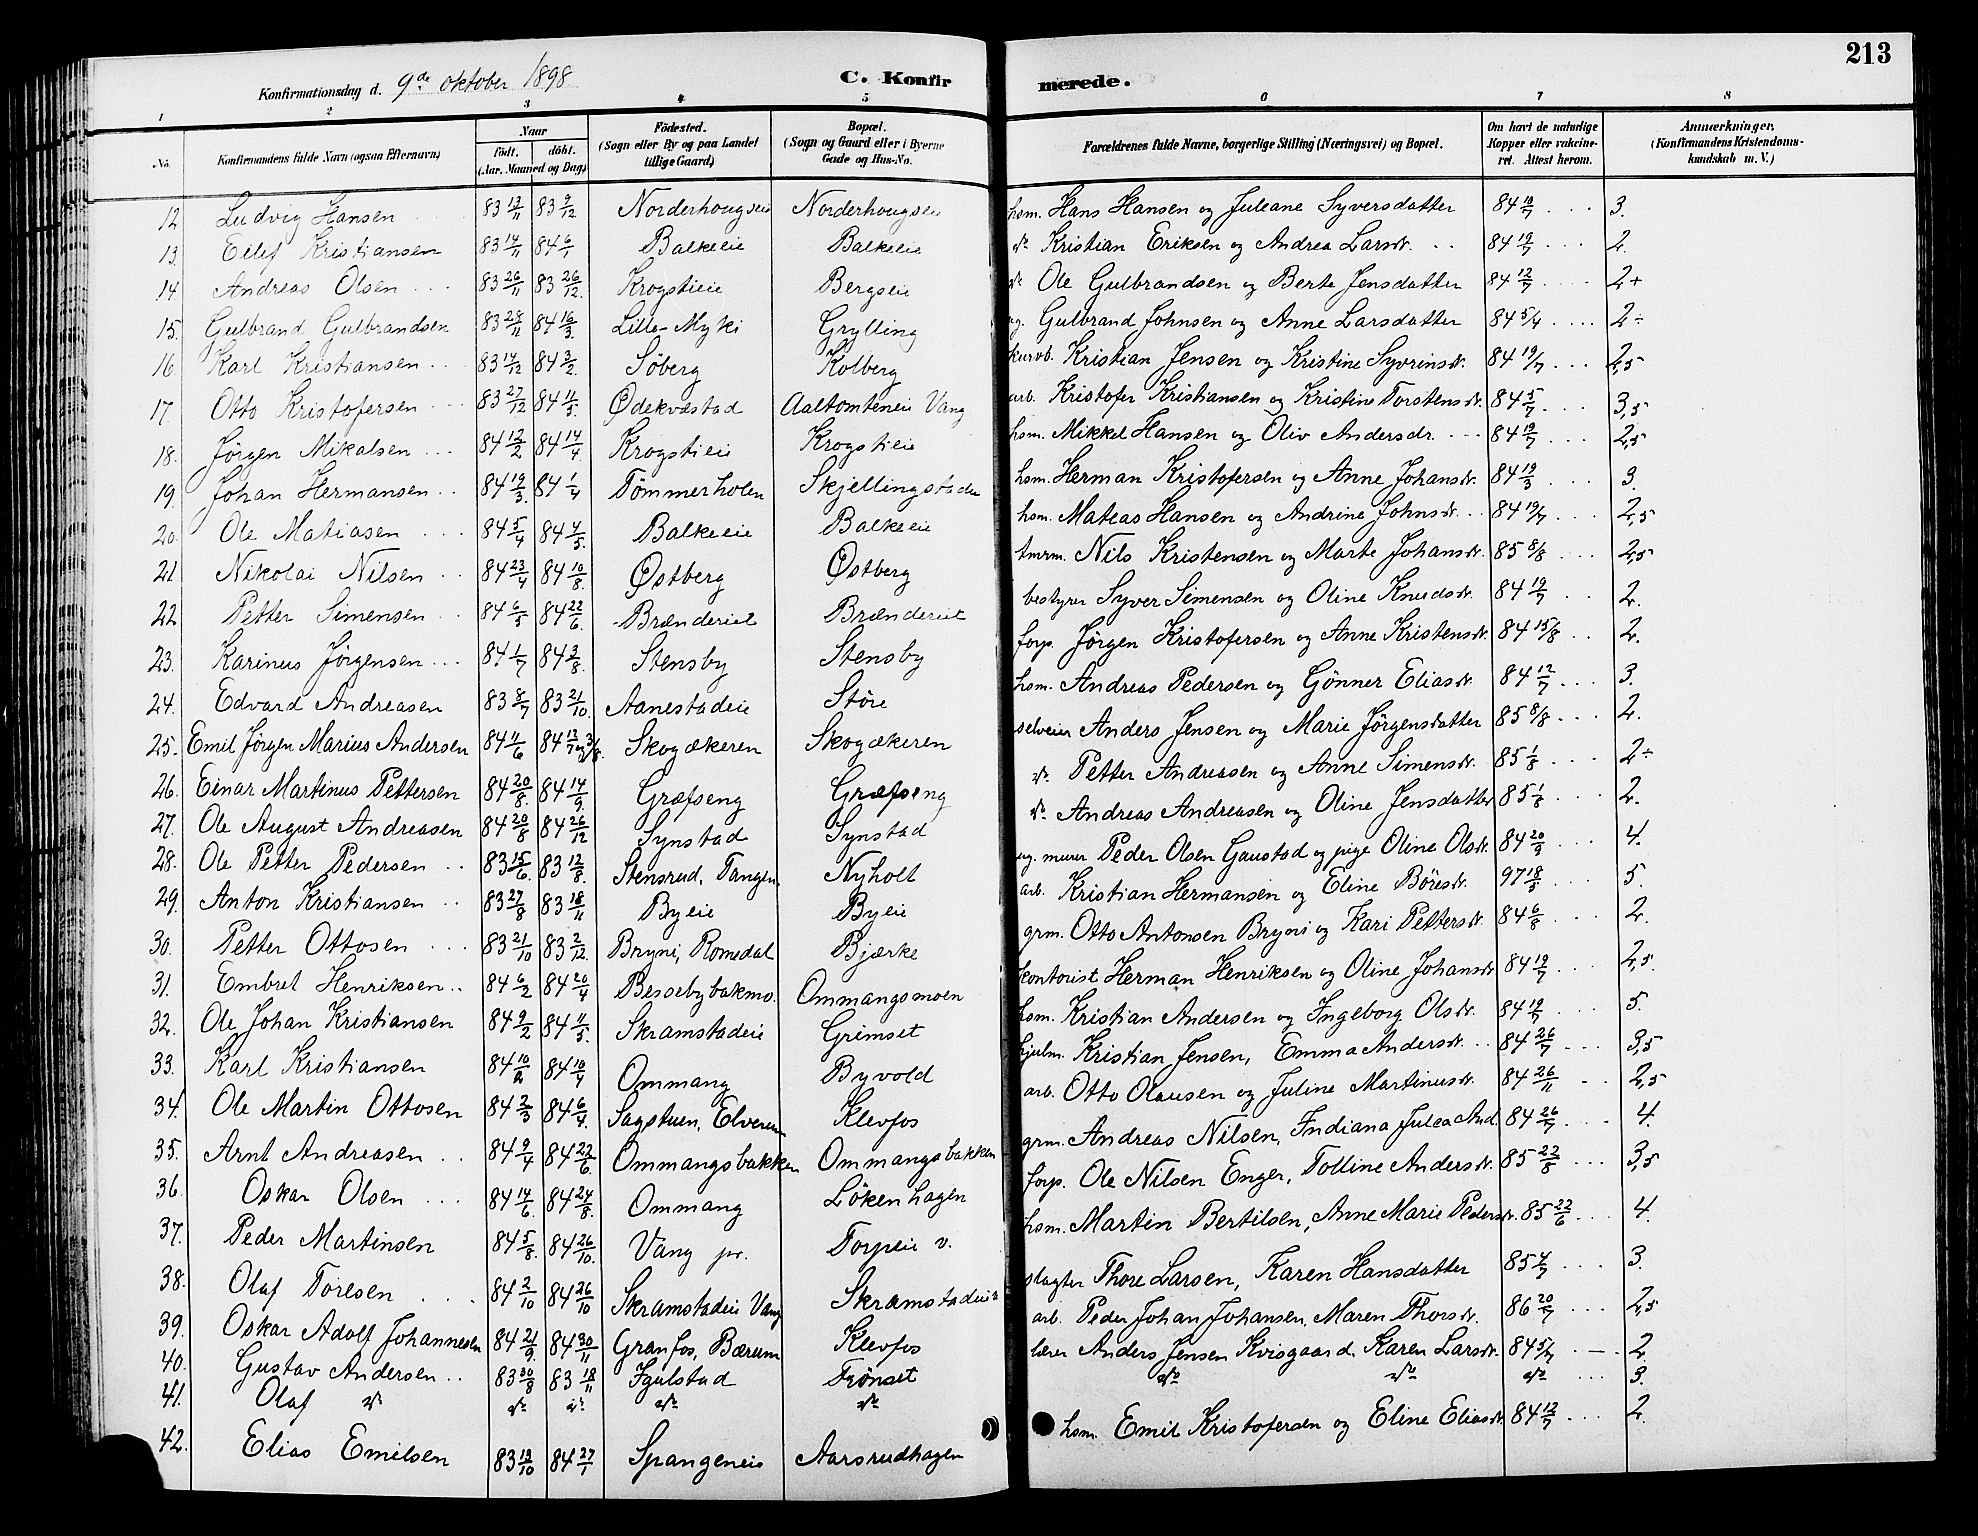 213
Konfirmationsdag d. 9de oktober 1898
C. Konfirmerede.
1 2 3 4 5 6 7 8
No. Konfirmandens fulde Navn (ogsaa Efternavn) Naar født. døbt. (Aar. Maaned og Dag) Fødested. (Sogn eller By og paa Landet tillige Gaard) Bopæl. (Sogn og Gaard eller i Byerne Gade og Hus-No. Forældrenes fulde Navne, borgerlige Stilling (Næringsvei) og Bopæl. Om havt de naturlige Kopper eller vakcineret. Attest herom. Anmærkninger. (Konfirmandens Kristendomskundskab m. V.)
12 Ludvig Hansen 83 83 9/12 Norderhougseie Norderhougseie hsm. Hans Hansen og Juleane Syversdatter 84 3.
13. Eilef Kristiansen 83 14/11 84 6/1 Balkeeie Balkeeie do Kristian Eriksen og Andrea Larsdr. 84 19/7 2.
14. Andreas Olsen 83 26/11 83 26/12 Krogstieie Bergseie do Ole Gulbrandsen og Berte Jensdatter 84 12/7 2+
15. Gulbrand Gulbrandsen 83 28/11 84 16/3 Lille-Myki Grylling Gulbrand Johnsen og Anne Larsdatter 84 5/4 2÷
16. Karl Kristiansen 83 14/12 84 3/2 Søberg Kolberg kurvb. Kristian Jensen og Kristine Syvrinsdr. 84 19/7 2,5
17. Otto Kristofersen 83 27/12 84 Ødekvæstad Aaltomteneie Vang arb. Kristofer Kristiansen og Kristine Torstensdr. 84 5/7 3,5
18. Jørgen Mikalsen 84 12/2 84 14/4 Krogstieie Krogstieie hsm. Mikkel Hansen og Oliv Andersdr. 84 19/7 2,5
19. Johan Hermansen 84 19/3 84 1/4 Tømmerholen Skjellingstadeie hsm. Herman Kristofersen og Anne Johansdr. 84 3.
20. Ole Matiasen 84 5/4 84 4/5 Balkeeie Balkeeie hsm. Mateas Hansen og Andrine Johnsdr. 84 19/7 2,5
21 Nikolai Nilsen 84 23/4 84 10/8 Østberg Østberg tmrm. Nils Kristensen og Marte Johansdr. 85 8/8 2,5
22 Petter Simensen 84 6/5 84 22/6 Brænderiet Brænderiet bestyrer Syver Simensen og Oline Knudsdr. 84 19/7 2.
23. Karinus Jørgensen 84 1/7 84 3/8 Stensby Stensby forp. Jørgen Kristofersen og Anne Kristensdr. 84 15/8 2.
24. Edvard Andreasen 83 8/7 83 21/10 Aanestadeie Støre hsm. Andreas Pedersen og Gønner Eliasdr. 84 12/7 3.
25. Emil Jørgen Marius Andersen 84 84 Skogækeren Skogækeren selveier Anders Jensen og Marie Jørgensdatter 85 8/8 2.
26. Einar Martinus Pettersen 84 20/8 84 14/9 Græfseng Græfseng do. Petter Andreasen og Anne Simensdr. 85 1/8 2÷
27. Ole August Andreasen 84 20/8 84 26/12 Synstad Synstad do. Andreas Andreasen og Oline Jensdatter 85 1/8 2.
28. Ole Petter Pedersen 83 15/6 83 12/8 Stensrud, Tangen Nyholt ug. murer Peder Olsen Gaustad og pige Oline Olsdr. 84 4.
29. Anton Kristiansen 83 27/8 83 18/11 Byeie Byeie arb. Kristian Hermansen og Eline Böresdr. 97 18/5 5.
30. Petter Ottosen 83 21/10 83 2/12 Bryni, Romedal Bjærke grm. Otto Antonsen Bryni og Kari Pettersdr. 84 6/8 2.
31. Embret Henriksen 84 6/2 84 20/4 Bessebybakmo. Ommangsmoen kontorist Herman Henriksen og Oline Johansdr 84 19/7 2,5.
32. Ole Johan Kristiansen 84 9/2 84 Skramstadeie Grimset hsm. Kristian Andersen og Ingeborg Olsdr. 84 19/7 5.
33. Karl Kristiansen 84 10/2 84 10/4 Ommang Byvold hjulm. Kristian Jensen, Emma Andersdr. 84 26/7 3,5
34. Ole Martin Ottosen 84 2/3 84 6/4 Sagstuen, Elverum Klevfos arb. Otto Olausen og Juline Martinusdr. 84 26/11 2,5
35. Arnt Andreasen 84 9/4 84 22/6 Ommangsbakken Ommangsbakken grm. Andreas Nilsen, Indiana Julea And. 84 26/7 4.
36. Oskar Olsen 84 14/6 84 24/8 Ommang Løkenhagen forp. Ole Nilsen Enger, Tolline Andersdr. 85 22/8 3,5
37. Peder Martinsen 84 5/8 84 26/10 Vang pr. Torpeie v. hsm. Martin Bertilsen, Anne Marie Pedersdr. 85 22/6 4.
38. Olaf Toresen 84 2/10 84 26/10 Skramstadeie Vang Skramstadeie slagter Thore Larsen, Karen Hansdatter 85 4/7 3.
39. Oskar Adolf Johannesen 84 21/9 84 30/11 Granfos, Bærum Klevfos arb. Peder Johan Johansen, Maren Thorsdr. 86 20/7 2,5
40. Gustav Andersen 83 30/8 83 18/11 Igulstad Frønset lærer Anders Jensen Kvisgaard, Karen Larsdr. 84 5/7 2
41. Olaf do do do do do do do do 3.
42. Elias Emilsen 83 84 27/1 Spangeneie Aarsrudhagen hsm. Emil Kristofersen og Eline Eliasdr. 84 12/7 2.